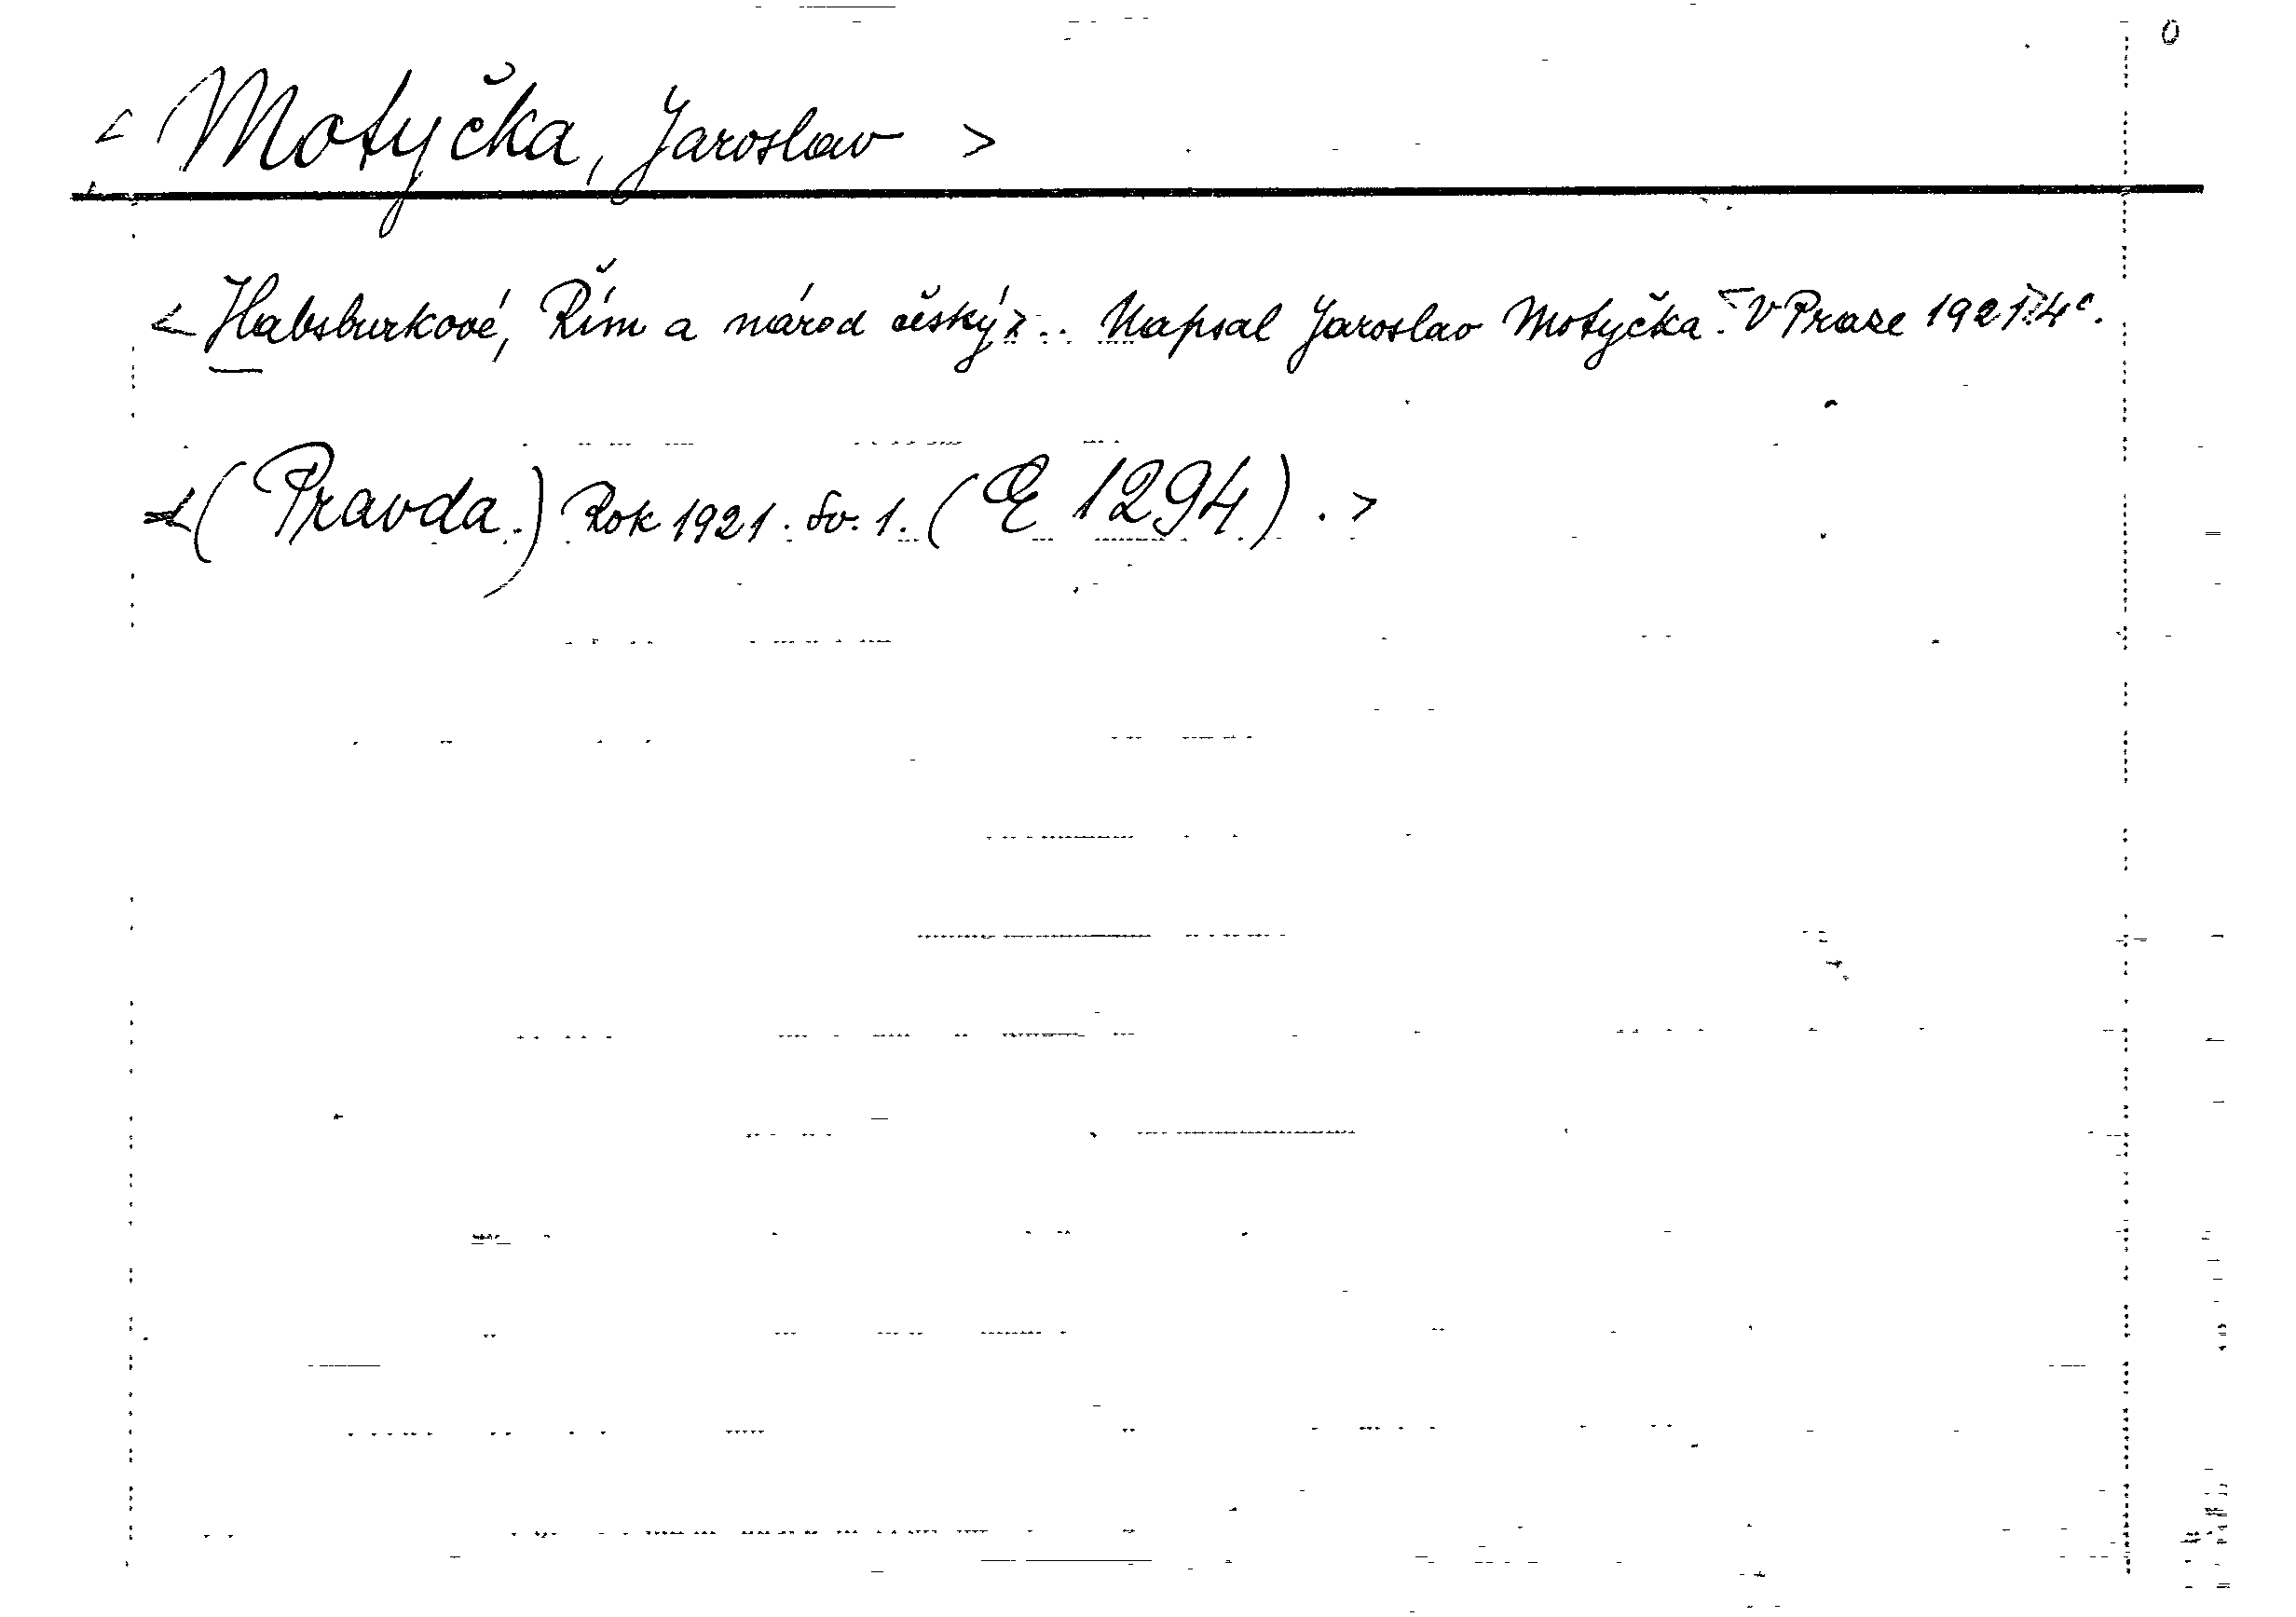 0
< Motyčka, Jaroslav >
< Habsburkové, Řím a národ český >.. Napsal Jaroslav Motyčka. < V Praze 1921 >. 4°.
< (Pravda.) Rok 1921. Sv. 1. (E 1294). >